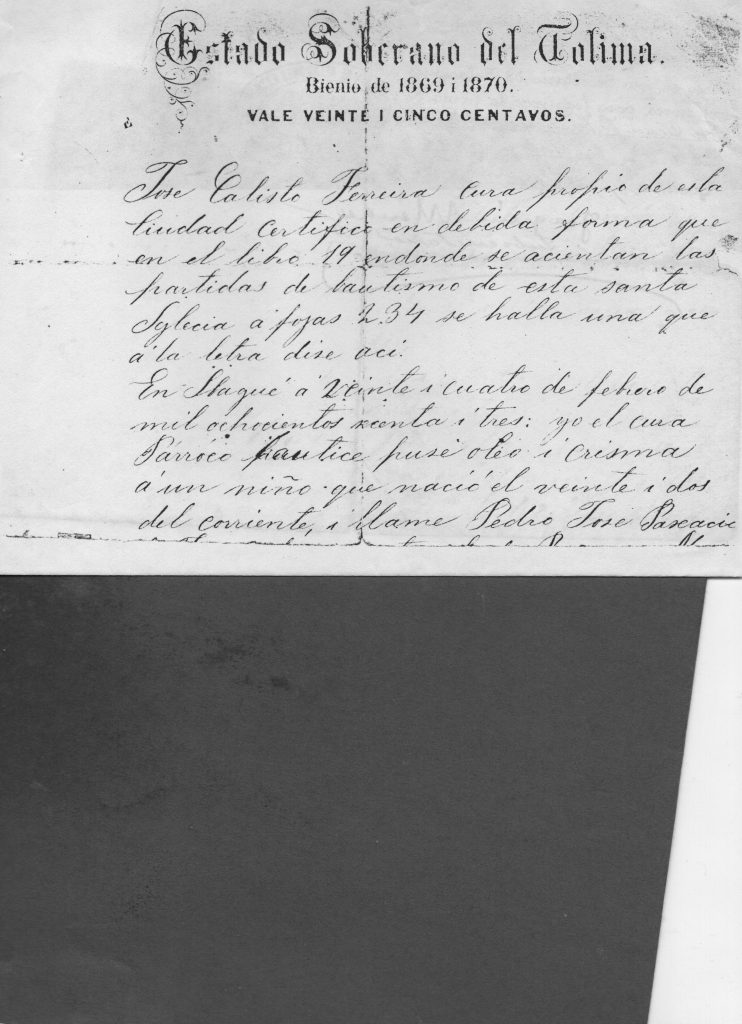 Estado Soberano del Tolima.
Bienio de 1869 i 1870.
VALE VEINTE I CINCO CENTAVOS.
Jose Calisto Ferreira cura propio de esta
Ciudad certifico en debida forma que
en el libro 19 endonde se acientan las
partidas de bautismo de esta santa
Yglecia a fojas 234 se halla una que
a la letra dise aci.
En Ibagué á veinte i cuatro de febrero de
mil ochocientos i tres: yo el cura
Párroco bautice puse oleo i crisma
a un niño que nació el veinte i dos
del corriente, i llame Pedro Jose Pascacio